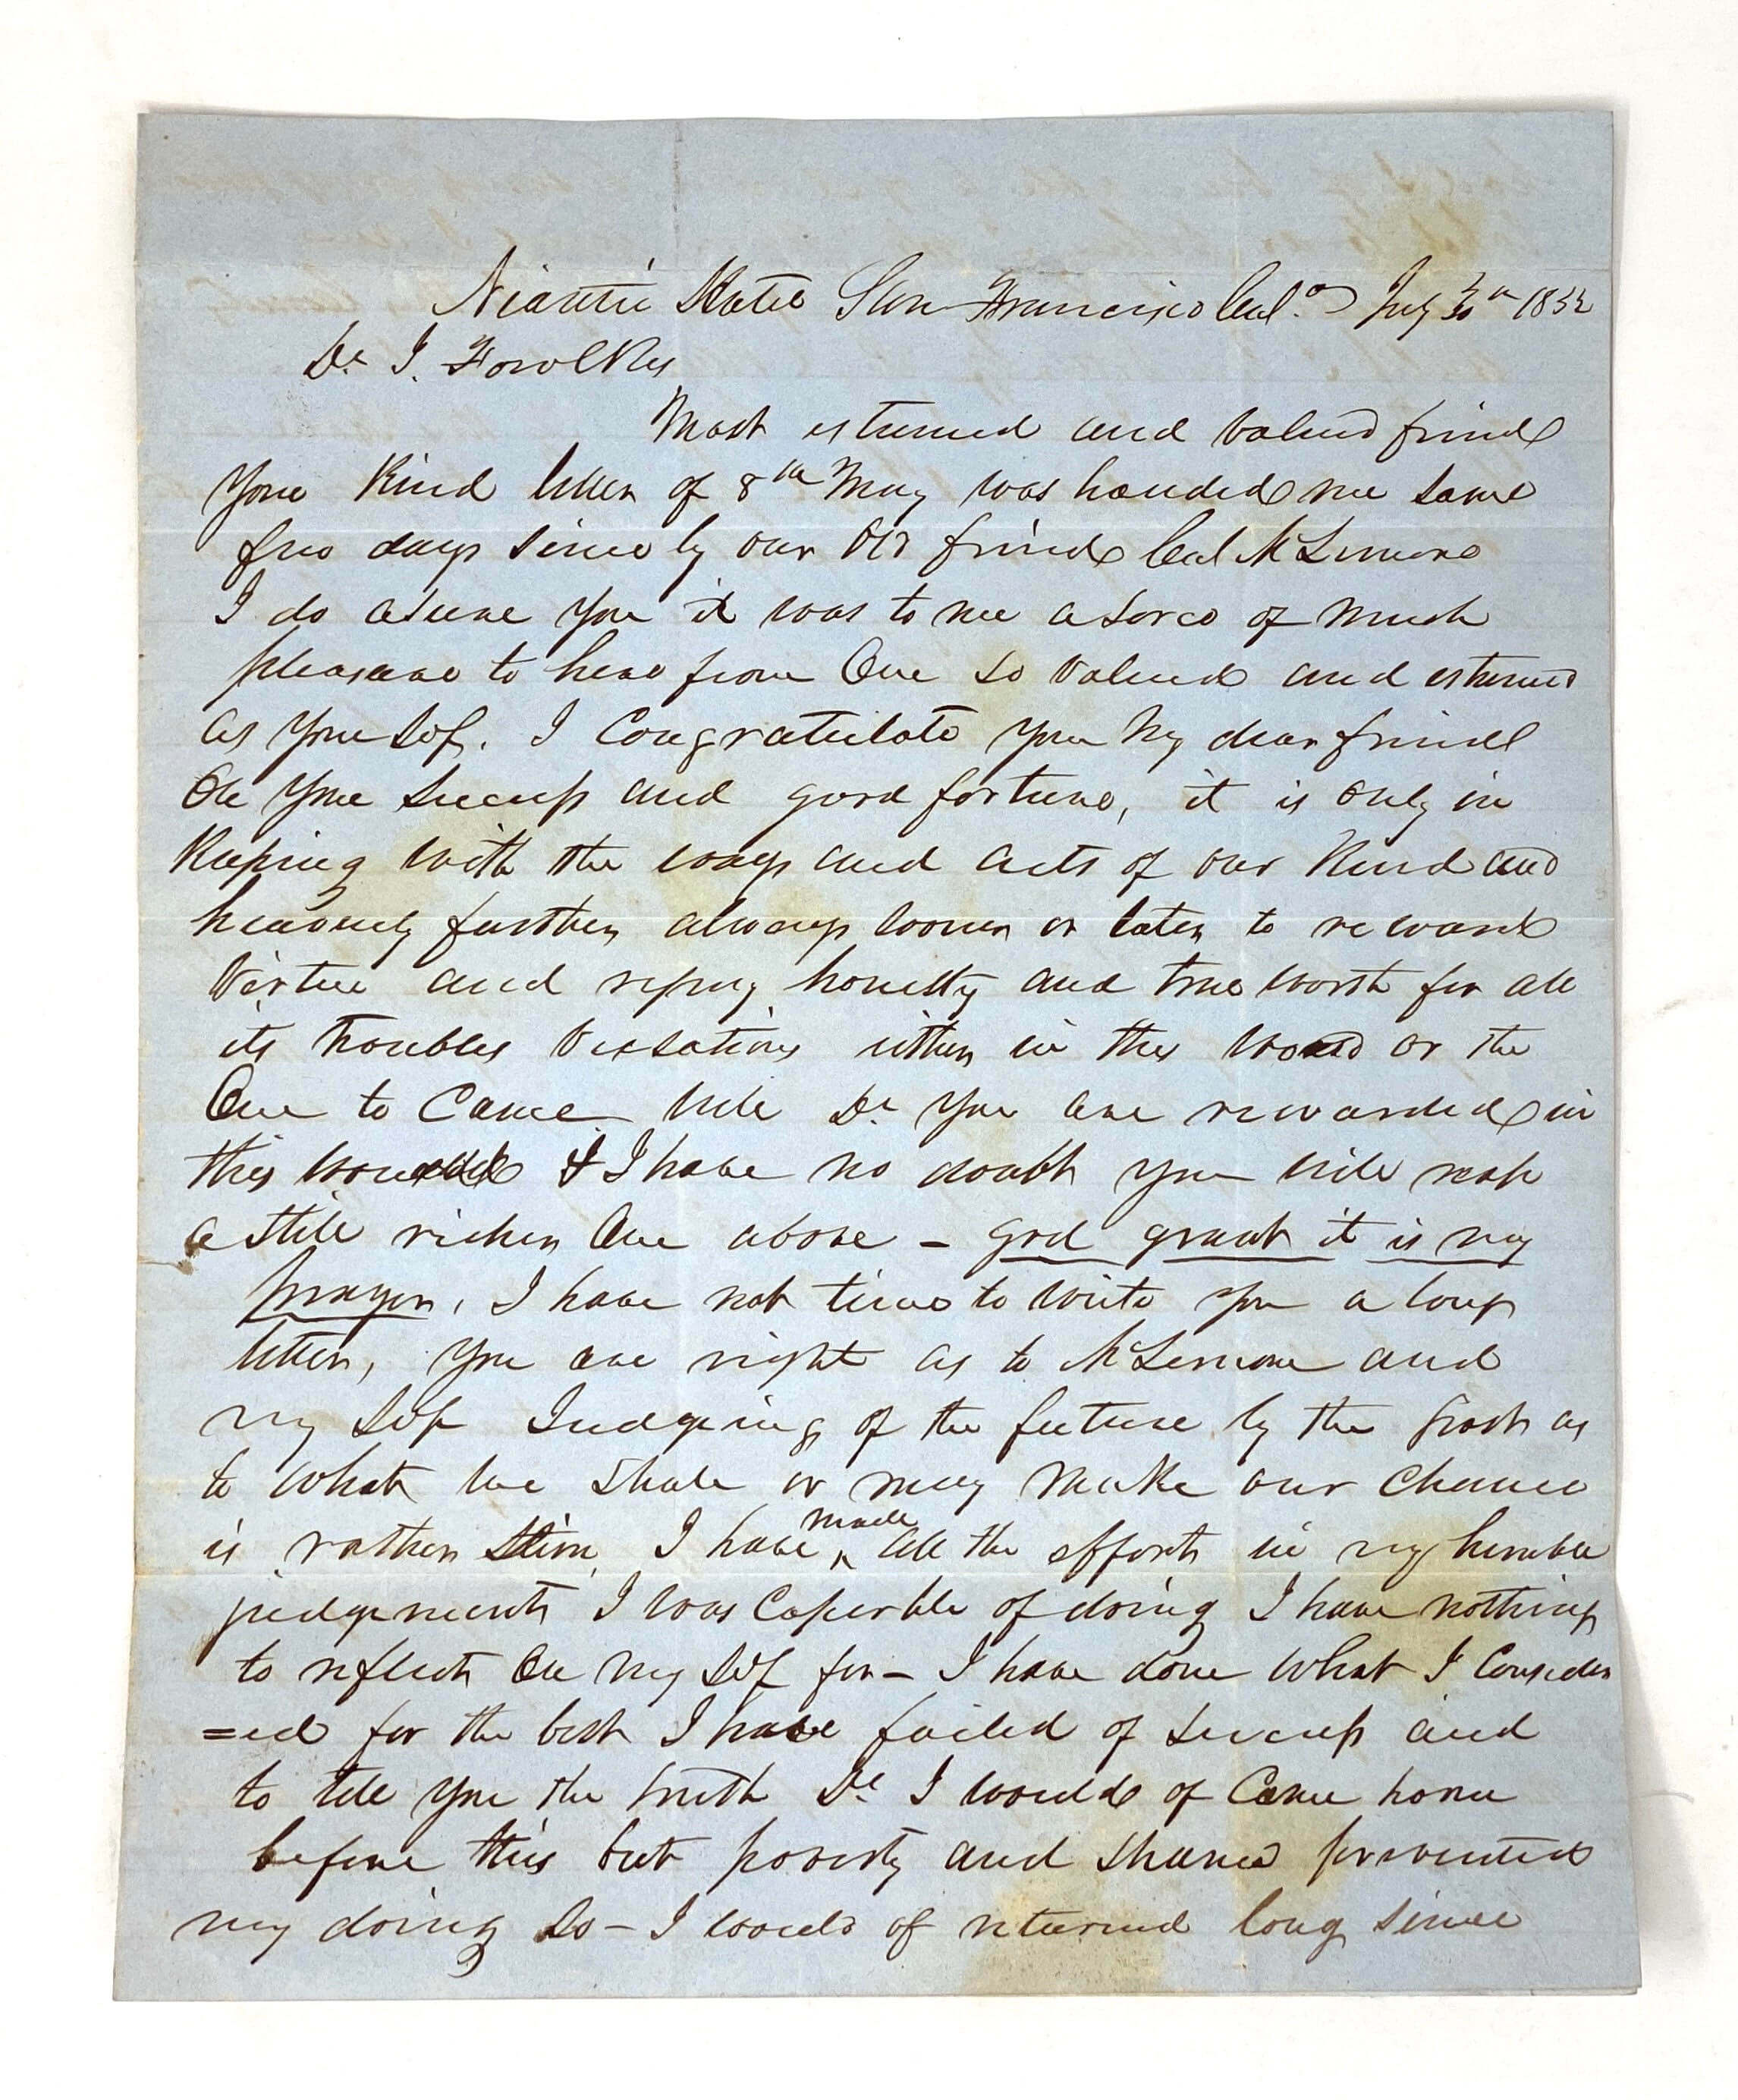 Niantic Hotel San Francisco Cal.a July 30th 1852
Dr. J. Fowlkes
Most esteemed and valued friend
Your Kind letter of 8th May was handed me some
few days since by our old friend Col McLemore
I do asure you it was to me a sorce of much
pleasure to hear from one so valued and esteemed
as your self. I Congratulate you my dear friend
on your success and good fortune, it is only in
Keeping with the ways and acts of our Kind and
heavenly farther always sooner or later to reward
virtue and repay honesty and true worth for all
its troubles vexsations either in this world or the
one to Come. Dr you are rewarded in
this world & I have no doubt you will reap
a still richer one above – god grant it is my
prayer, I have not time to write you a long
letter, you are right as to McLemore and
my self Judgeing of the future by the past as
to what we shall or may make our chance
is rather slim, I have made all the efforts in my humble
judgement I was Caperble of doing I have nothing
to reflect on my self for – I have done what I Consider
=ed for the best I have failed of success and
to tell you the truth Dr I would of Come home
before this but poverty and shame prevented
my doing so – I would of returned long since